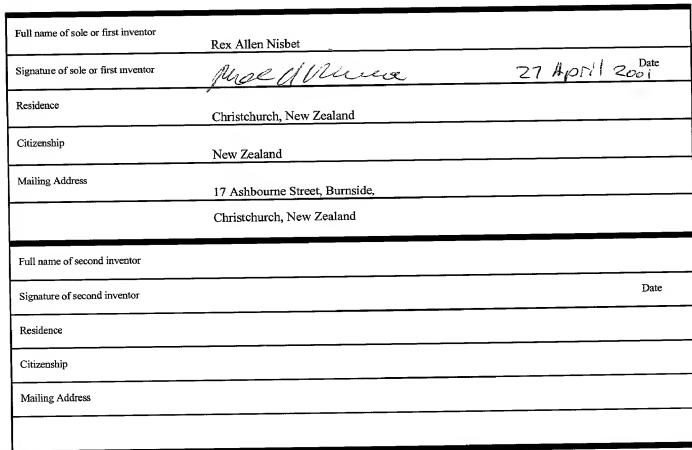 Full name of sole or first inventor
Rex Allen Nisbet
Signature of sole or first inventor 27 April 2001 Date
Residence
Christchurch, New Zealand
Citizenship
New Zealand
Mailing Address
17 Ashbourne Street, Burnside,
Christchurch, New Zealand
Full name of second inventor
Signature of second inventor Date
Residence
Citizenship
Mailing Address